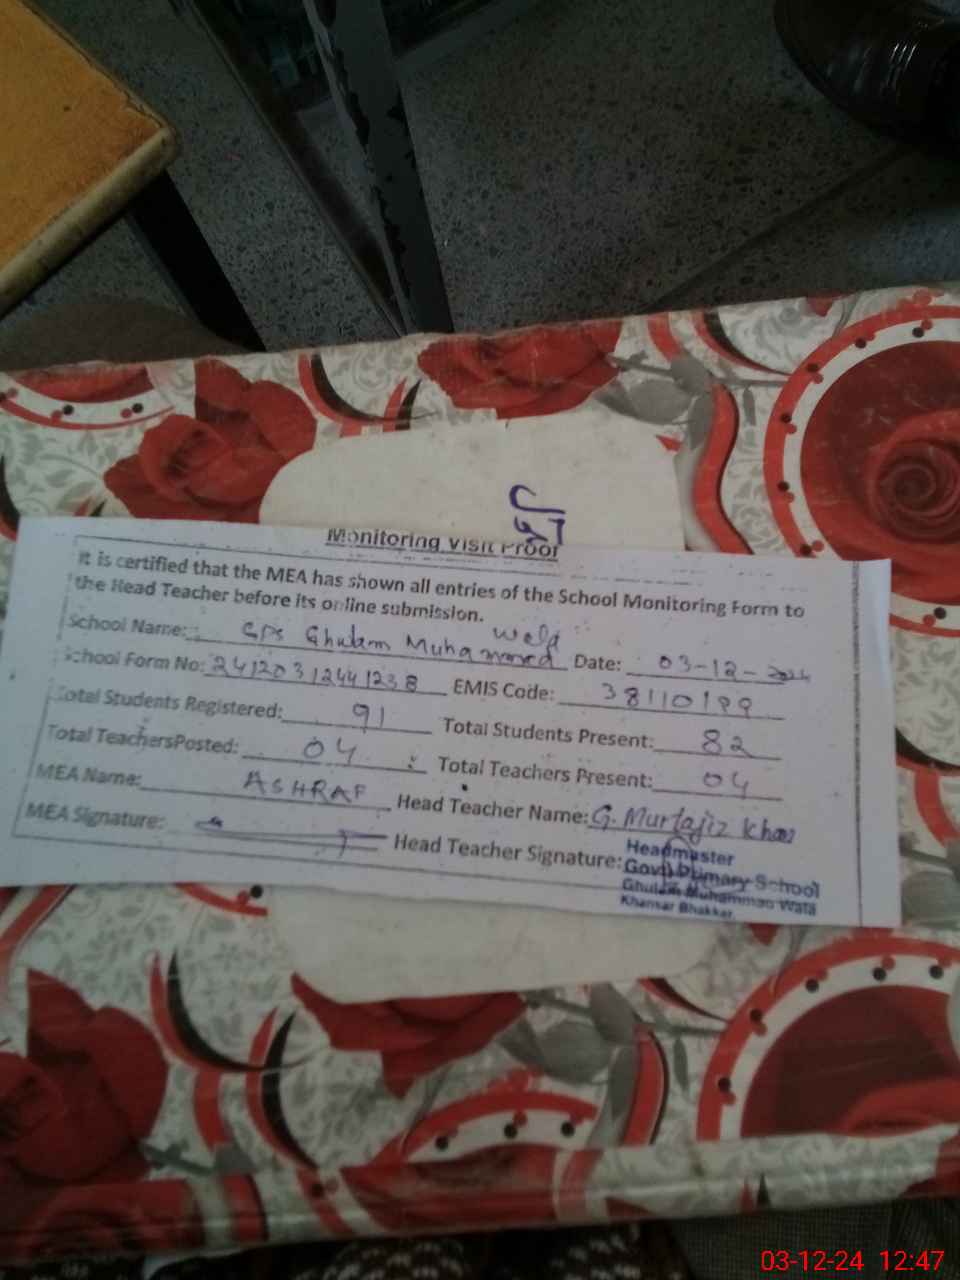 Monitoring Visit Proof
It is certified that the MEA has shown all entries of the School Monitoring Form to
the Head Teacher before its online submission.
School Name: GPS Ghulam Muhammed Wala Date: 03-12-2024
School Form No: 24120312441238 EMIS Code: 38110199
Total Students Registered: 91 Total Students Present: 82
Total TeachersPosted: 04 Total Teachers Present: 04
MEA Name: ASHRAF Head Teacher Name: G. Murtajiz Khan
MEA Signature: Head Teacher Signature:
Headmaster
Govt. Primary School
Ghulam Muhammad Wala
Khansar Bhakkar.
03-12-24 12:47